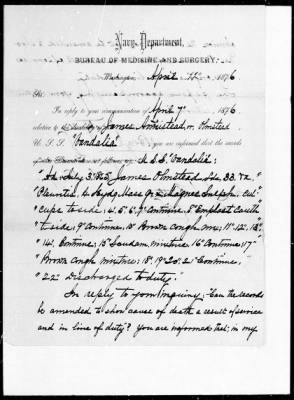 Navy Department,
BUREAU OF MEDICINE AND SURGERY,
Washington, April 1876
Sir:
In reply to your communication of April 7" 1876
relative to James Armstead, or Olmstead
U. S. S. "Vandalia" you are informed that the records
U.S.S. "Vandalia:
"Ad. July 3" James Olmstead, Lds. 33. Va.
"Pleuritis.
"cups to side; 4. 5. 6. 7" Continue, 8" Emplast Canth
"to side; 9" Continue, 10" Brown Cough mix; 11" 12. 13"
"14. Continue; 15" mixture, 16" Continue 17"
"Brown Cough mixture; 18". 19" 20. 21" Continue;
"22" Discharged to duty."
In reply to your inquiry:- "Can the records
be amended to show cause of death a result of service
and in line of duty? You are informed that; in my